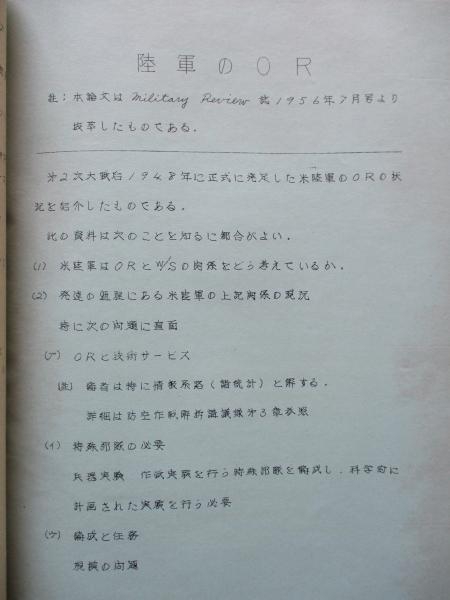 陸軍のOR
註:本論文は Military Review 誌1956年7月号より
抜萃したものである.
才2次大戦后1948年に正式に発足した米陸軍のOROの状
況を紹介したものである.
此の資料は次のことを知るに都合がよい.
(1) 米陸軍はORとW/SD関係をどう考えているか.
(2) 発達の過程にある米陸軍の上記関係の現況
特に次の問題に直面
(ア) ORと技術サービス
(註) 著者は特に情報系路(諸統計)と解する.
詳細は防空作戦解析講議録才3章参照
(イ) 特殊部隊の必要
兵器実験 作戦実験を行う特殊部隊を編成し.科学的に
計画された実験を行う必要
(ウ) 編成と任務
規模の問題